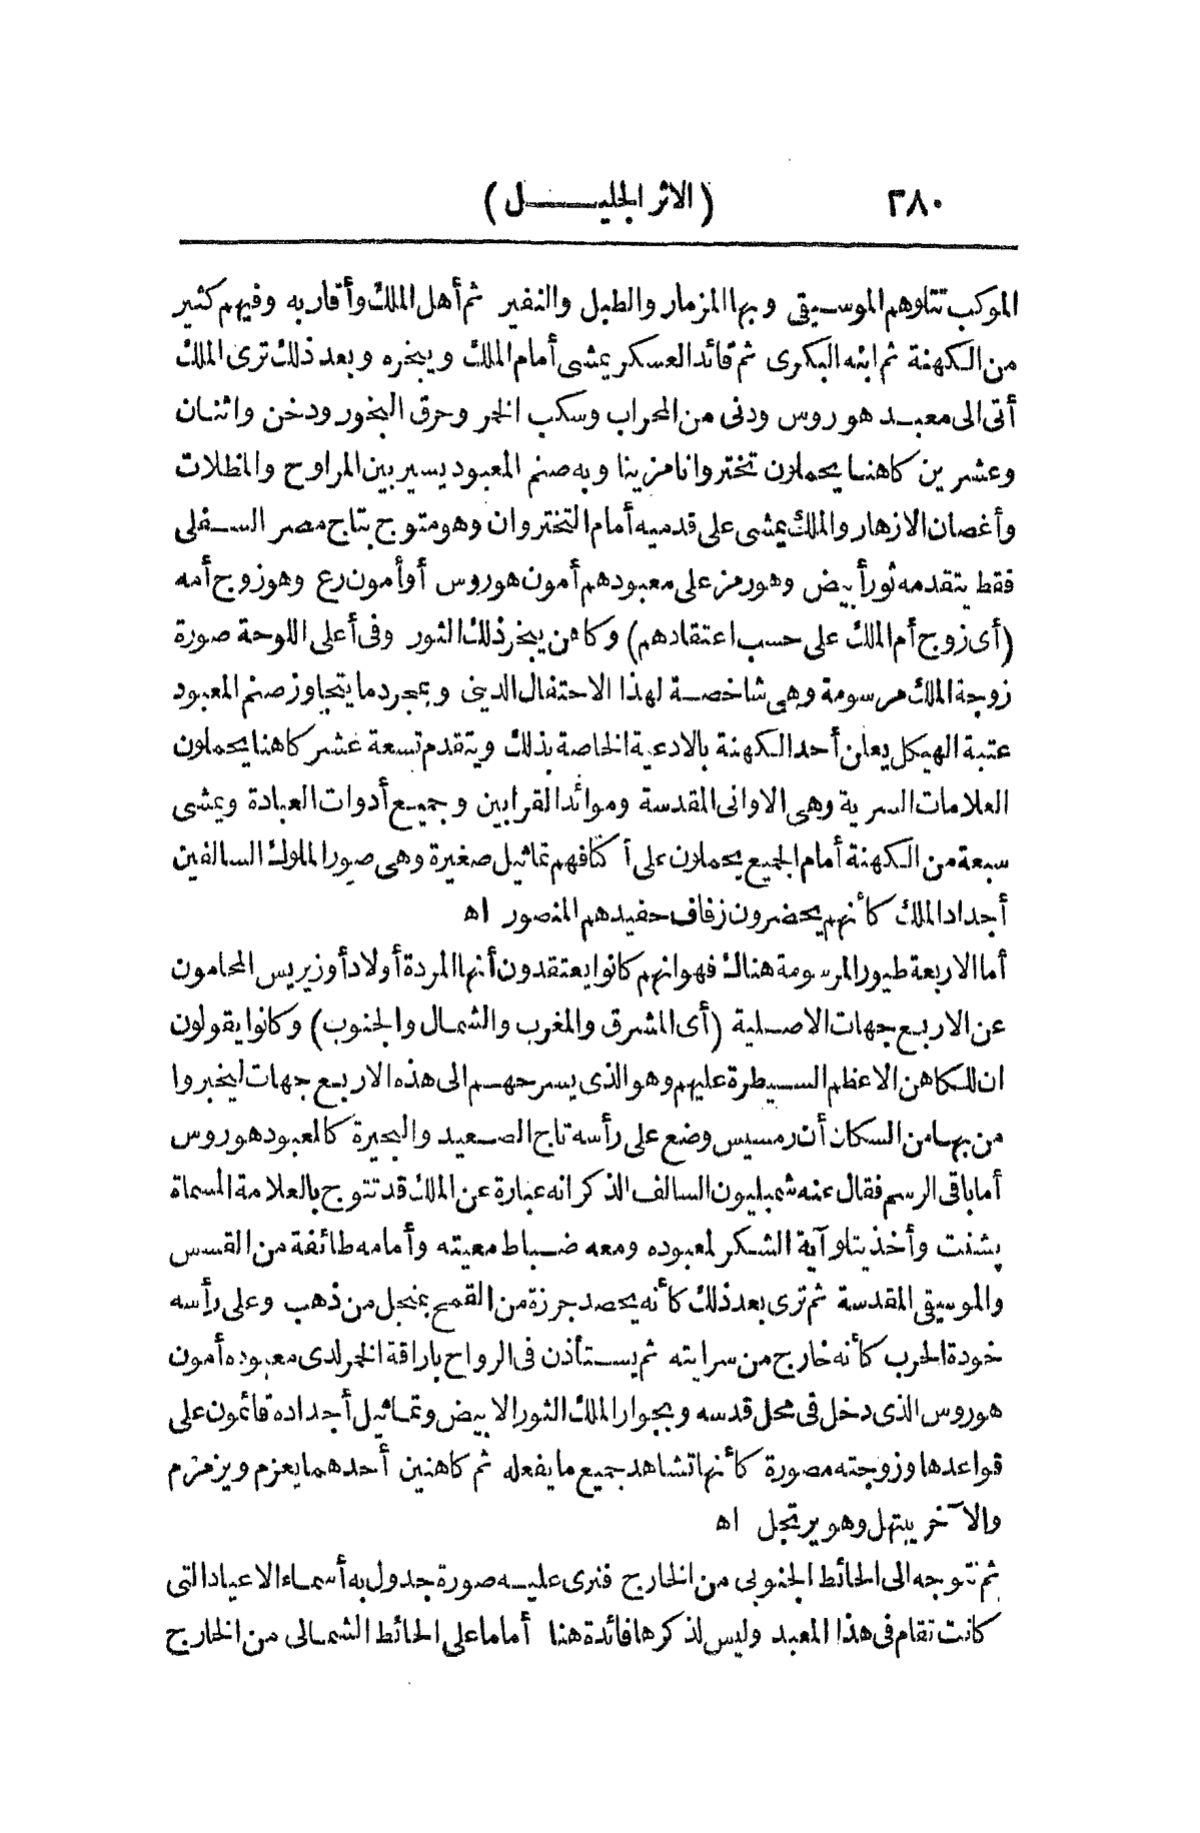 ٢٨٠ (الاثر الجليل)
الموكب تتلوهم الموسيقى وبها المزمار والطبل والنفير ثم أهل الملك وأقاربه وفيهم كثير
من الكهنة ثم ابنه البكرى ثم قائد العسكر يمشى أمام الملك ويبخره وبعد ذلك ترى الملك
أتى الى معبد هوروس ودنى من المحراب وسكب الخمر وحرق البخور ودخن واثنان
وعشرين كاهنا يحملون تختروانا مزينا وبه صنم المعبود يسير بين المراوح والمظلات
وأغصان الازهار والملك يمشى على قدميه أمام التختروان وهو متوج بتاج مصر السفلى
فقط يتقدمه ثور أبيض وهو رمز على معبودهم أمون هوروس أو أمون رع وهو زوج أمه
(أى زوج أم الملك على حسب اعتقادهم) وكاهن يبخر ذلك الثور وفى أعلى اللوحة صورة
زوجة الملك مرسومة وهى شاخصة لهذا الاحتفال الدينى وبمجرد ما يتجاوز صنم المعبود
عتبة الهيكل يعلن أحد الكهنة بالادعية الخاصة بذلك ويتقدم تسعة عشر كاهنا يحملون
العلامات السرية وهى الاوانى المقدسة وموائد القرابين وجميع أدوات العبادة ويمشى
سبعة من الكهنة أمام الجميع يحملون على أكتافهم تماثيل صغيرة وهى صور الملوك السالفين
أجداد الملك كأنهم يحضرون زفاف حفيدهم المنصور اه
أما الاربعة طيور المرسومة هناك فهو انهم كانوا يعتقدون أنها المردة أولاد أوزيريس المحامون
عن الاربع جهات الاصلية (أى المشرق والمغرب والشمال والجنوب) وكانوا يقولون
ان للكاهن الاعظم السيطرة عليهم وهو الذى يسرحهم الى هذه الاربع جهات ليخبروا
من بها من السكان أن رمسيس وضع على رأسه تاج الصعيد والبحيرة كالمعبود هوروس
أما باقى الرسم فقال عنه شمبليون السالف الذكر انه عبارة عن الملك قد تتوج بالعلامة المسماة
پشنت وأخذ يتلو آية الشكر لمعبوده ومعه ضباط معيته وأمامه طائفة من القسس
والموسيقى المقدسة ثم ترى بعد ذلك كأنه يحصد جرزة من القمح بمنجل من ذهب وعلى رأسه
خودة الحرب كأنه خارج من سرايته ثم يستأذن فى الرواح باراقة الخمر لدى معبوده أمون
هوروس الذى دخل فى محل قدسه وبجوار الملك الثور الابيض وتماثيل أجداده قائمون على
قواعدها وزوجته مصورة كأنها تشاهد جميع ما يفعله ثم كاهنين أحدهما يعزم ويزمزم
والآخر يبتهل وهو يرتجل اه
ثم نتوجه الى الحائط الجنوبى من الخارج فنرى عليه صورة جدول به أسماء الاعياد التى
كانت تقام فى هذا المعبد وليس لذكرها فائدة هنا أما ما على الحائط الشمالى من الخارج